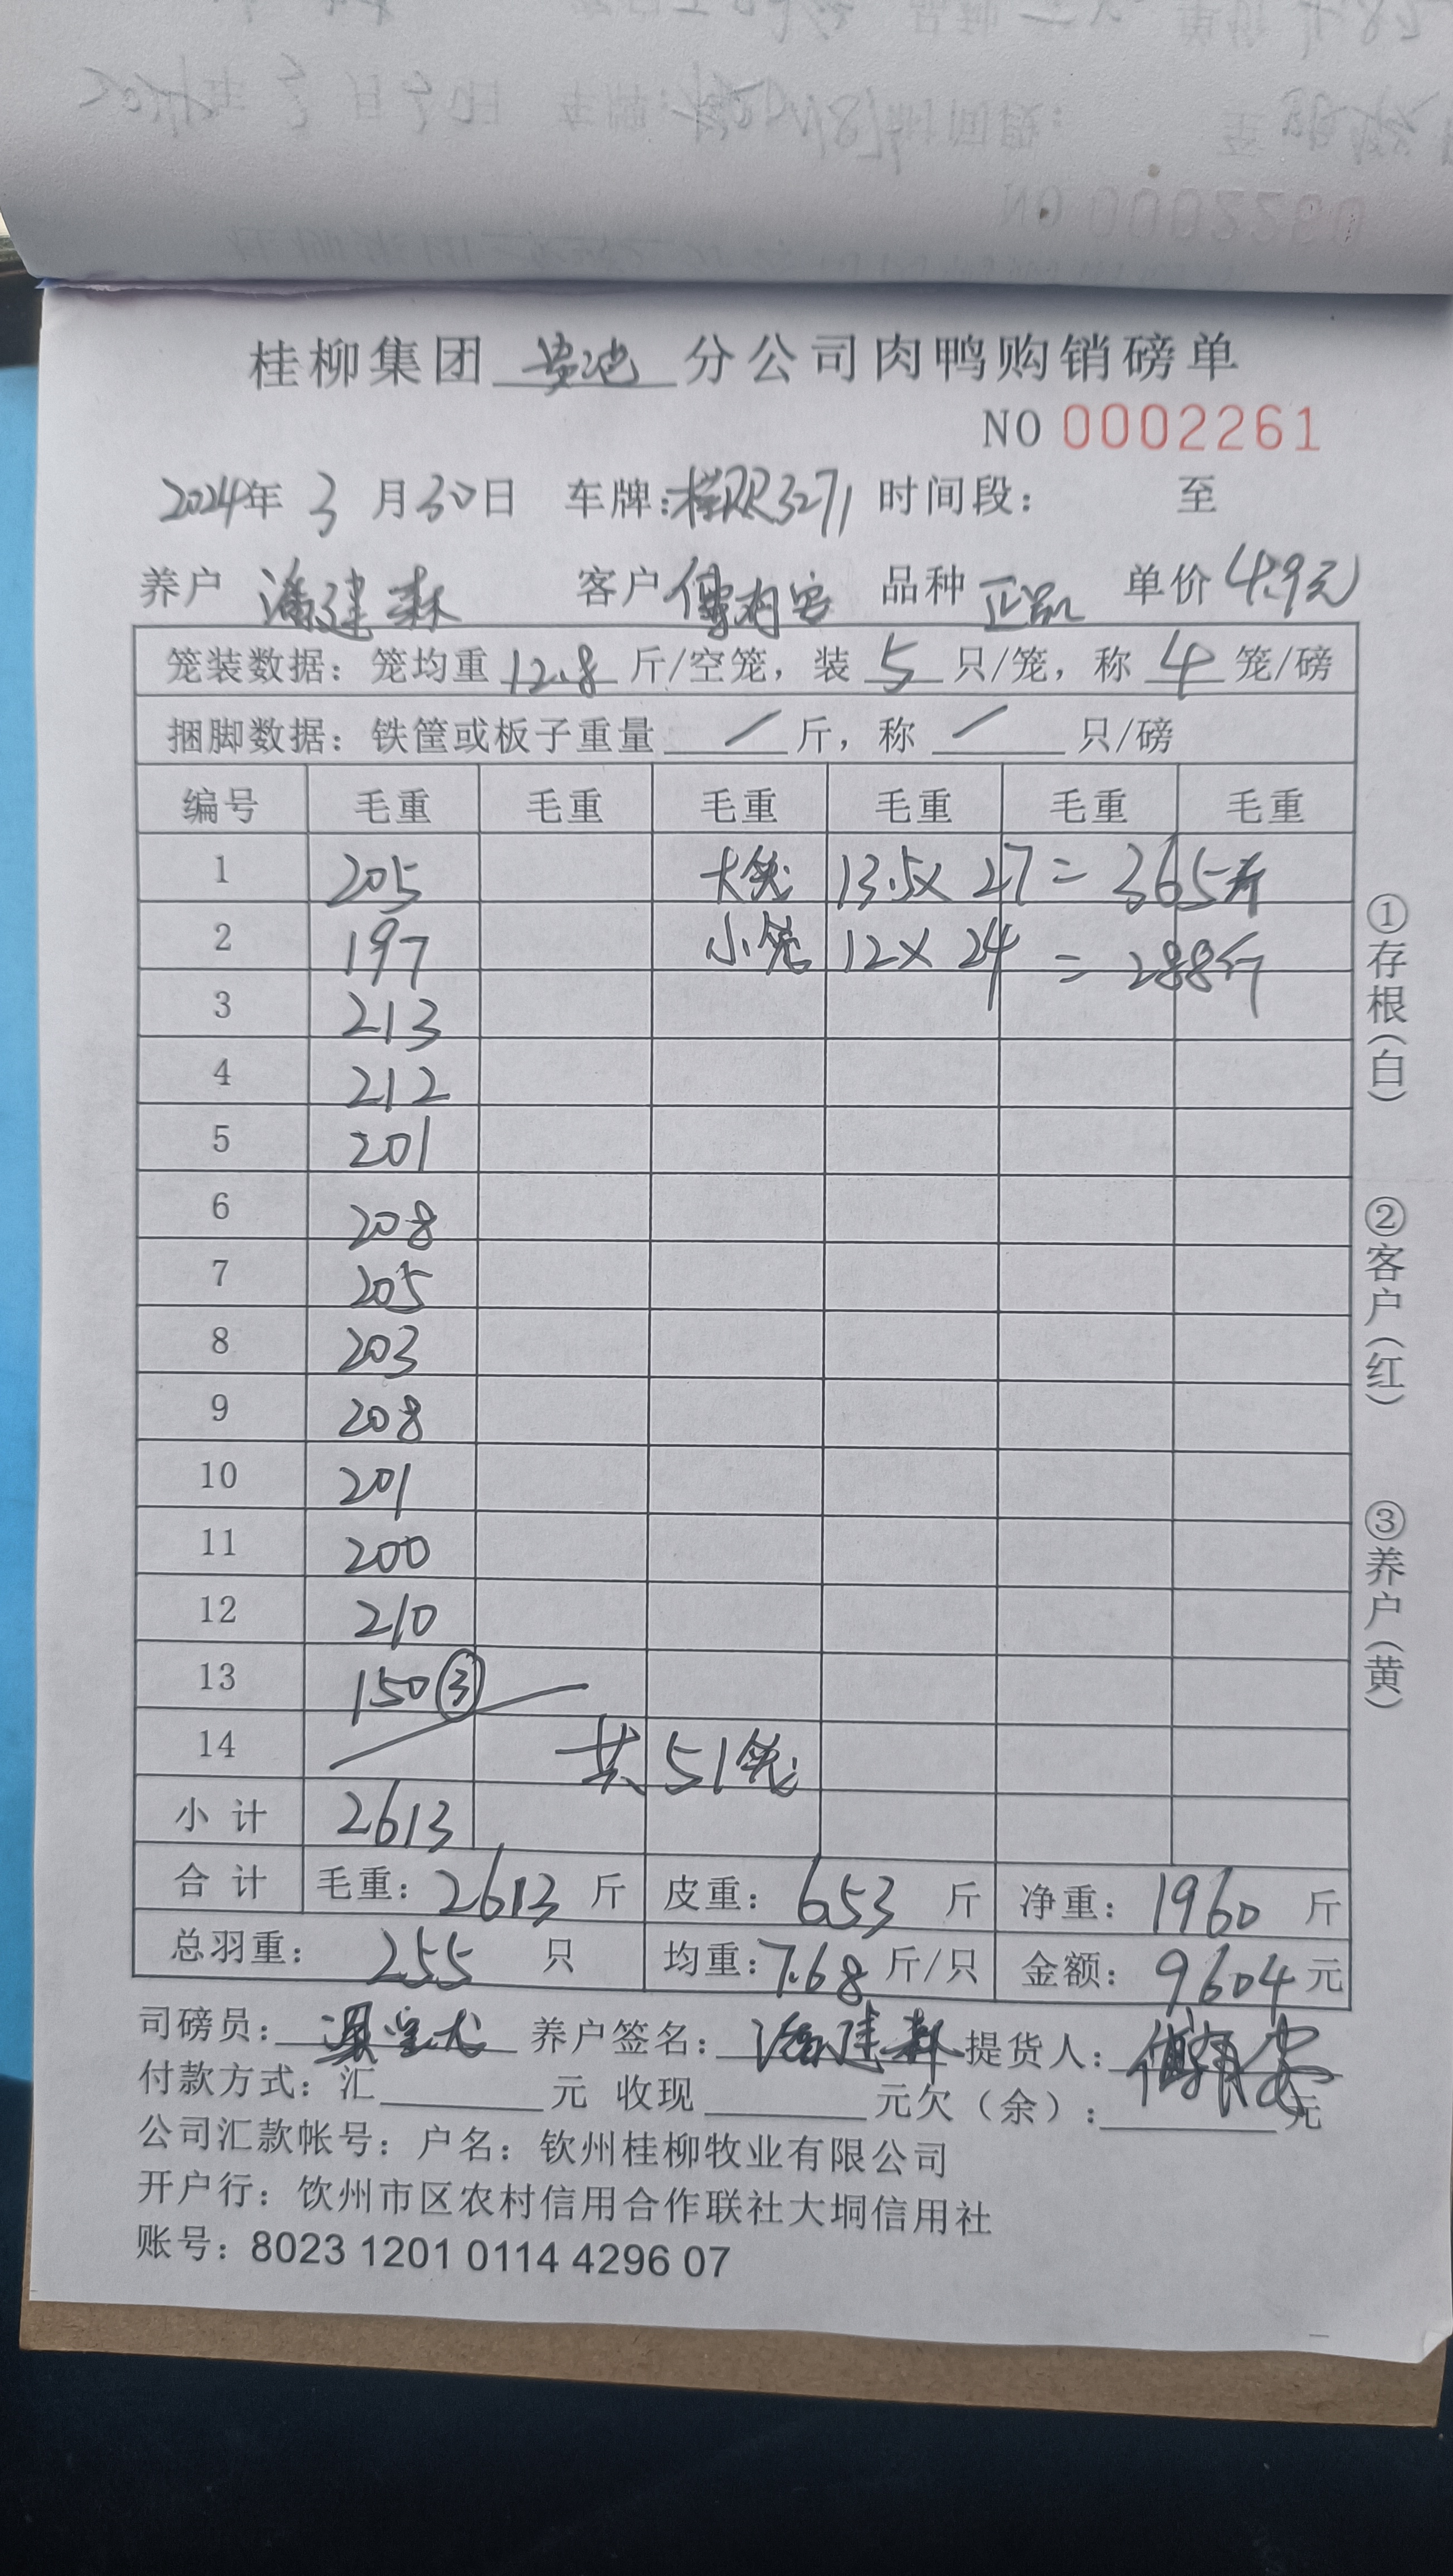 桂柳集团 黄池 分公司肉鸭购销磅单
NO 0002261
2024年 3 月 30 日 车牌: 3271 时间段: 至
养户 潘建森 客户 傅有安 品种 单价 4.9元
笼装数据: 笼均重 12.8 斤/空笼, 装 5 只/笼, 称 4 笼/磅
捆脚数据: 铁筐或板子重量 / 斤, 称 / 只/磅
编号 毛重 毛重 毛重 毛重 毛重 毛重
1 205 大笼 13.5× 27 = 365斤
2 197 小笼 12× 24 = 288斤
3 213
4 212
5 201
6 208
7 205
8 203
9 208
10 201
11 200
12 210
13 150 ③
14 共51笼
小 计 2613
合 计 毛重: 2613 斤 皮重: 653 斤 净重: 1960 斤
总羽重: 255 只 均重: 7.68 斤/只 金额: 9604 元
司磅员: 养户签名: 潘建森 提货人: 傅有安
付款方式: 汇 元 收现 元欠（余）: 元
公司汇款帐号: 户名: 钦州桂柳牧业有限公司
开户行: 钦州市区农村信用合作联社大垌信用社
账号: 8023 1201 0114 4296 07
①存根(白)
②客户(红)
③养户(黄)